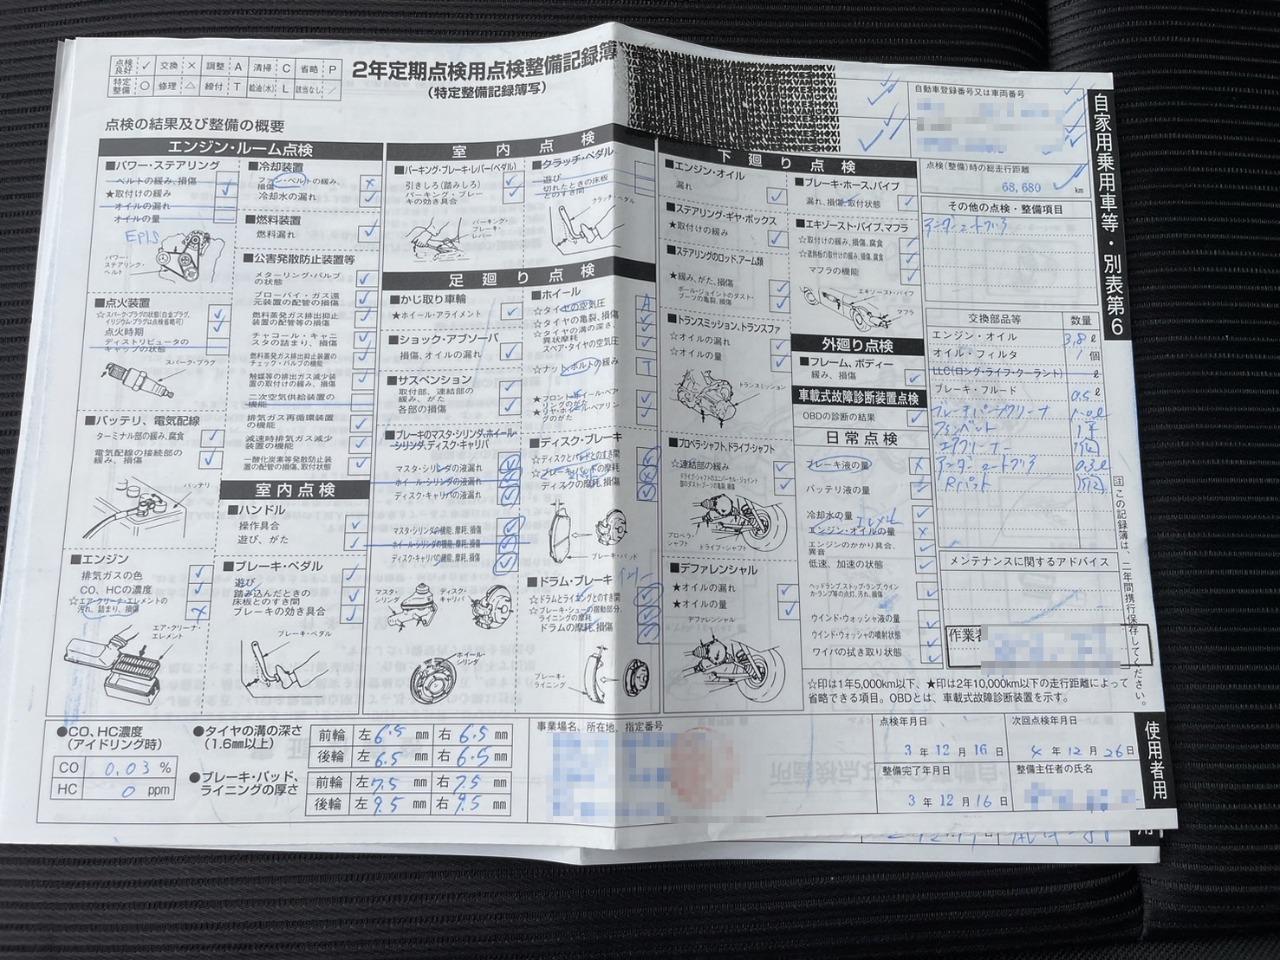 点検良好 ✓ 交換 × 調整 A 清掃 C 省略 P
特定整備 ○ 修理 △ 締付 T 給油(水) L 該当なし ／
2年定期点検用点検整備記録簿
(特定整備記録簿写)
点検の結果及び整備の概要
エンジン・ルーム点検
■パワー・ステアリング
ベルトの緩み、損傷
★取付けの緩み
オイルの漏れ
オイルの量
EPIS
パワー・ステアリング・ベルト
■点火装置
☆スパーク・プラグの状態(白金プラグ、イリジウム・プラグは点検省略可)
点火時期
ディストリビュータのキャップの状態
スパーク・プラグ
■バッテリ、電気配線
ターミナル部の緩み、腐食
電気配線の接続部の緩み、損傷
バッテリ
■エンジン
排気ガスの色
CO、HCの濃度
☆エア・クリーナ・エレメントの汚れ、詰まり、損傷
エア・クリーナ・エレメント
■冷却装置
ファン・ベルトの緩み、損傷
冷却水の漏れ
■燃料装置
燃料漏れ
■公害発散防止装置等
メターリング・バルブの状態
ブローバイ・ガス還元装置の配管の損傷
燃料蒸発ガス排出抑止装置の配管等の損傷
チャコール・キャニスタの詰まり、損傷
燃料蒸発ガス排出抑止装置のチェック・バルブの機能
触媒等の排出ガス減少装置の取付けの緩み、損傷
二次空気供給装置の機能
排気ガス再循環装置の機能
減速時排気ガス減少装置の機能
一酸化炭素等発散防止装置の配管の損傷、取付状態
室内点検
■ハンドル
操作具合
遊び、がた
■ブレーキ・ペダル
遊び
踏み込んだときの床板とのすき間
ブレーキの効き具合
ブレーキ・ペダル
室内点検
■パーキング・ブレーキ・レバー(ペダル)
引きしろ(踏みしろ)
パーキング・ブレーキの効き具合
パーキング・ブレーキ・レバー
■クラッチ・ペダル
遊び
切れたときの床板とのすき間
クラッチ・ペダル
足廻り点検
■かじ取り車輪
★ホイール・アライメント
■ショック・アブソーバ
損傷、オイルの漏れ
■サスペンション
取付部、連結部の緩み、がた
各部の損傷
■ブレーキのマスタ・シリンダ、ホイール・シリンダ、ディスク・キャリパ
マスタ・シリンダの液漏れ
ホイール・シリンダの液漏れ
ディスク・キャリパの液漏れ
マスタ・シリンダの機能、摩耗、損傷
ホイール・シリンダの機能、摩耗、損傷
ディスク・キャリパの機能、摩耗、損傷
マスタ・シリンダ
ディスク・キャリパ
ホイール・シリンダ
■ホイール
☆タイヤの空気圧 A
☆タイヤの亀裂、損傷
☆タイヤの溝の深さ、異状摩耗
スペア・タイヤの空気圧
☆ナット、ボルトの緩み T
★フロント・ホイール・ベアリングのがた
★リヤ・ホイール・ベアリングのがた
■ディスク・ブレーキ
☆ディスクとパッドとのすき間
☆ブレーキ・パッドの摩耗
ディスクの摩耗、損傷
ブレーキ・パッド
■ドラム・ブレーキ
☆ドラムとライニングとのすき間
☆ブレーキ・シューの摺動部分、ライニングの摩耗
ドラムの摩耗、損傷
ブレーキ・ライニング
下廻り点検
■エンジン・オイル
漏れ
■ステアリング・ギヤ・ボックス
★取付けの緩み
■ステアリングのロッド、アーム類
★緩み、がた、損傷
ボール・ジョイントのダスト・ブーツの亀裂、損傷
■トランスミッション、トランスファ
☆オイルの漏れ
☆オイルの量
トランスミッション
■プロペラ・シャフト、ドライブ・シャフト
☆連結部の緩み
ドライブ・シャフトのユニバーサル・ジョイント部のダスト・ブーツの亀裂、損傷
プロペラ・シャフト
ドライブ・シャフト
■デファレンシャル
★オイルの漏れ
★オイルの量
デファレンシャル
■ブレーキ・ホース、パイプ
漏れ、損傷、取付状態
■エキゾースト・パイプ、マフラ
☆取付けの緩み、損傷、腐食
☆遮熱板の取付けの緩み、損傷、腐食
マフラの機能
エキゾースト・パイプ
マフラ
外廻り点検
■フレーム、ボディー
緩み、損傷
車載式故障診断装置点検
OBDの診断の結果
日常点検
ブレーキ液の量
バッテリ液の量
冷却水の量
エンジン・オイルの量
エンジンのかかり具合、異音
低速、加速の状態
ヘッドランプ、ストップ・ランプ、ウインカ・ランプ等の点灯、汚れ、損傷
ウインド・ウォッシャ液の量
ウインド・ウォッシャの噴射状態
ワイパの拭き取り状態
☆印は1年5,000km以下、★印は2年10,000km以下の走行距離によって省略できる項目。OBDとは、車載式故障診断装置を示す。
自動車登録番号又は車両番号
点検(整備)時の総走行距離
68,680 km
その他の点検・整備項目
交換部品等 数量
エンジン・オイル 3.8 ℓ
オイル・フィルタ 1 個
LLC(ロング・ライフ・クーラント) ℓ
ブレーキ・フルード 0.5 ℓ
メンテナンスに関するアドバイス
作業者
自家用乗用車等・別表第6
注 この記録簿は、二年間携行保存してください。
使用者用
●CO、HC濃度(アイドリング時)
CO 0.03 %
HC 0 ppm
●タイヤの溝の深さ(1.6mm以上)
前輪 左 6.5 mm 右 6.5 mm
後輪 左 6.5 mm 右 6.5 mm
●ブレーキ・パッド、ライニングの厚さ
前輪 左 7.5 mm 右 7.5 mm
後輪 左 9.5 mm 右 9.5 mm
事業場名、所在地、指定番号
点検年月日
3年12月16日
次回点検年月日
4年12月26日
整備完了年月日
3年12月16日
整備主任者の氏名